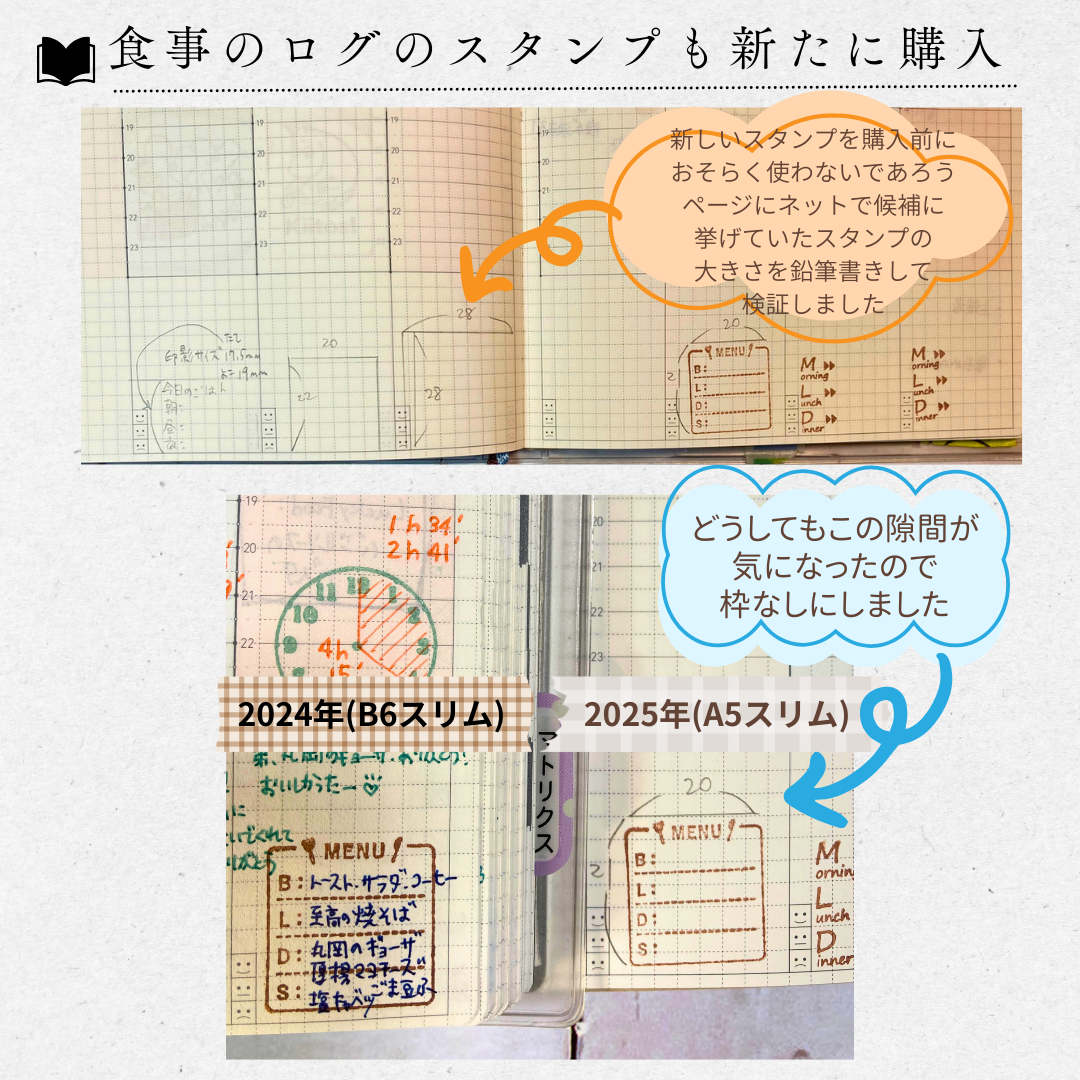 食事のログのスタンプも新たに購入
新しいスタンプを購入前に
おそらく使わないであろう
ページにネットで候補に
挙げていたスタンプの
大きさを鉛筆書きして
検証しました
19
20
21
22
23
19
20
21
22
23
19
20
21
22
23
19
20
21
たて
印影サイズ 17.5mm
よこ 19mm
今日のごはん
朝:
昼:
夜:
20
22
28
28
20
2
MENU
B:
L:
D:
S:
Morning
Lunch
Dinner
Morning
Lunch
Dinner
どうしてもこの隙間が
気になったので
枠なしにしました
19
20
21
22
1h 34'
2h 41'
10
11
12
1
2
3
9
4h
15'
20
21
22
23
2024年(B6スリム)
2025年(A5スリム)
マトリクス
おいしかったー
MENU
B:トースト.サラダ.コーヒー
L:至高の焼そば
D:丸岡のギョーザ
厚揚マヨチーズ
S:塩キャベツ ごま豆ふ
20
2
MENU
B:
L:
D:
S:
M
ornin
L
unch
D
inner